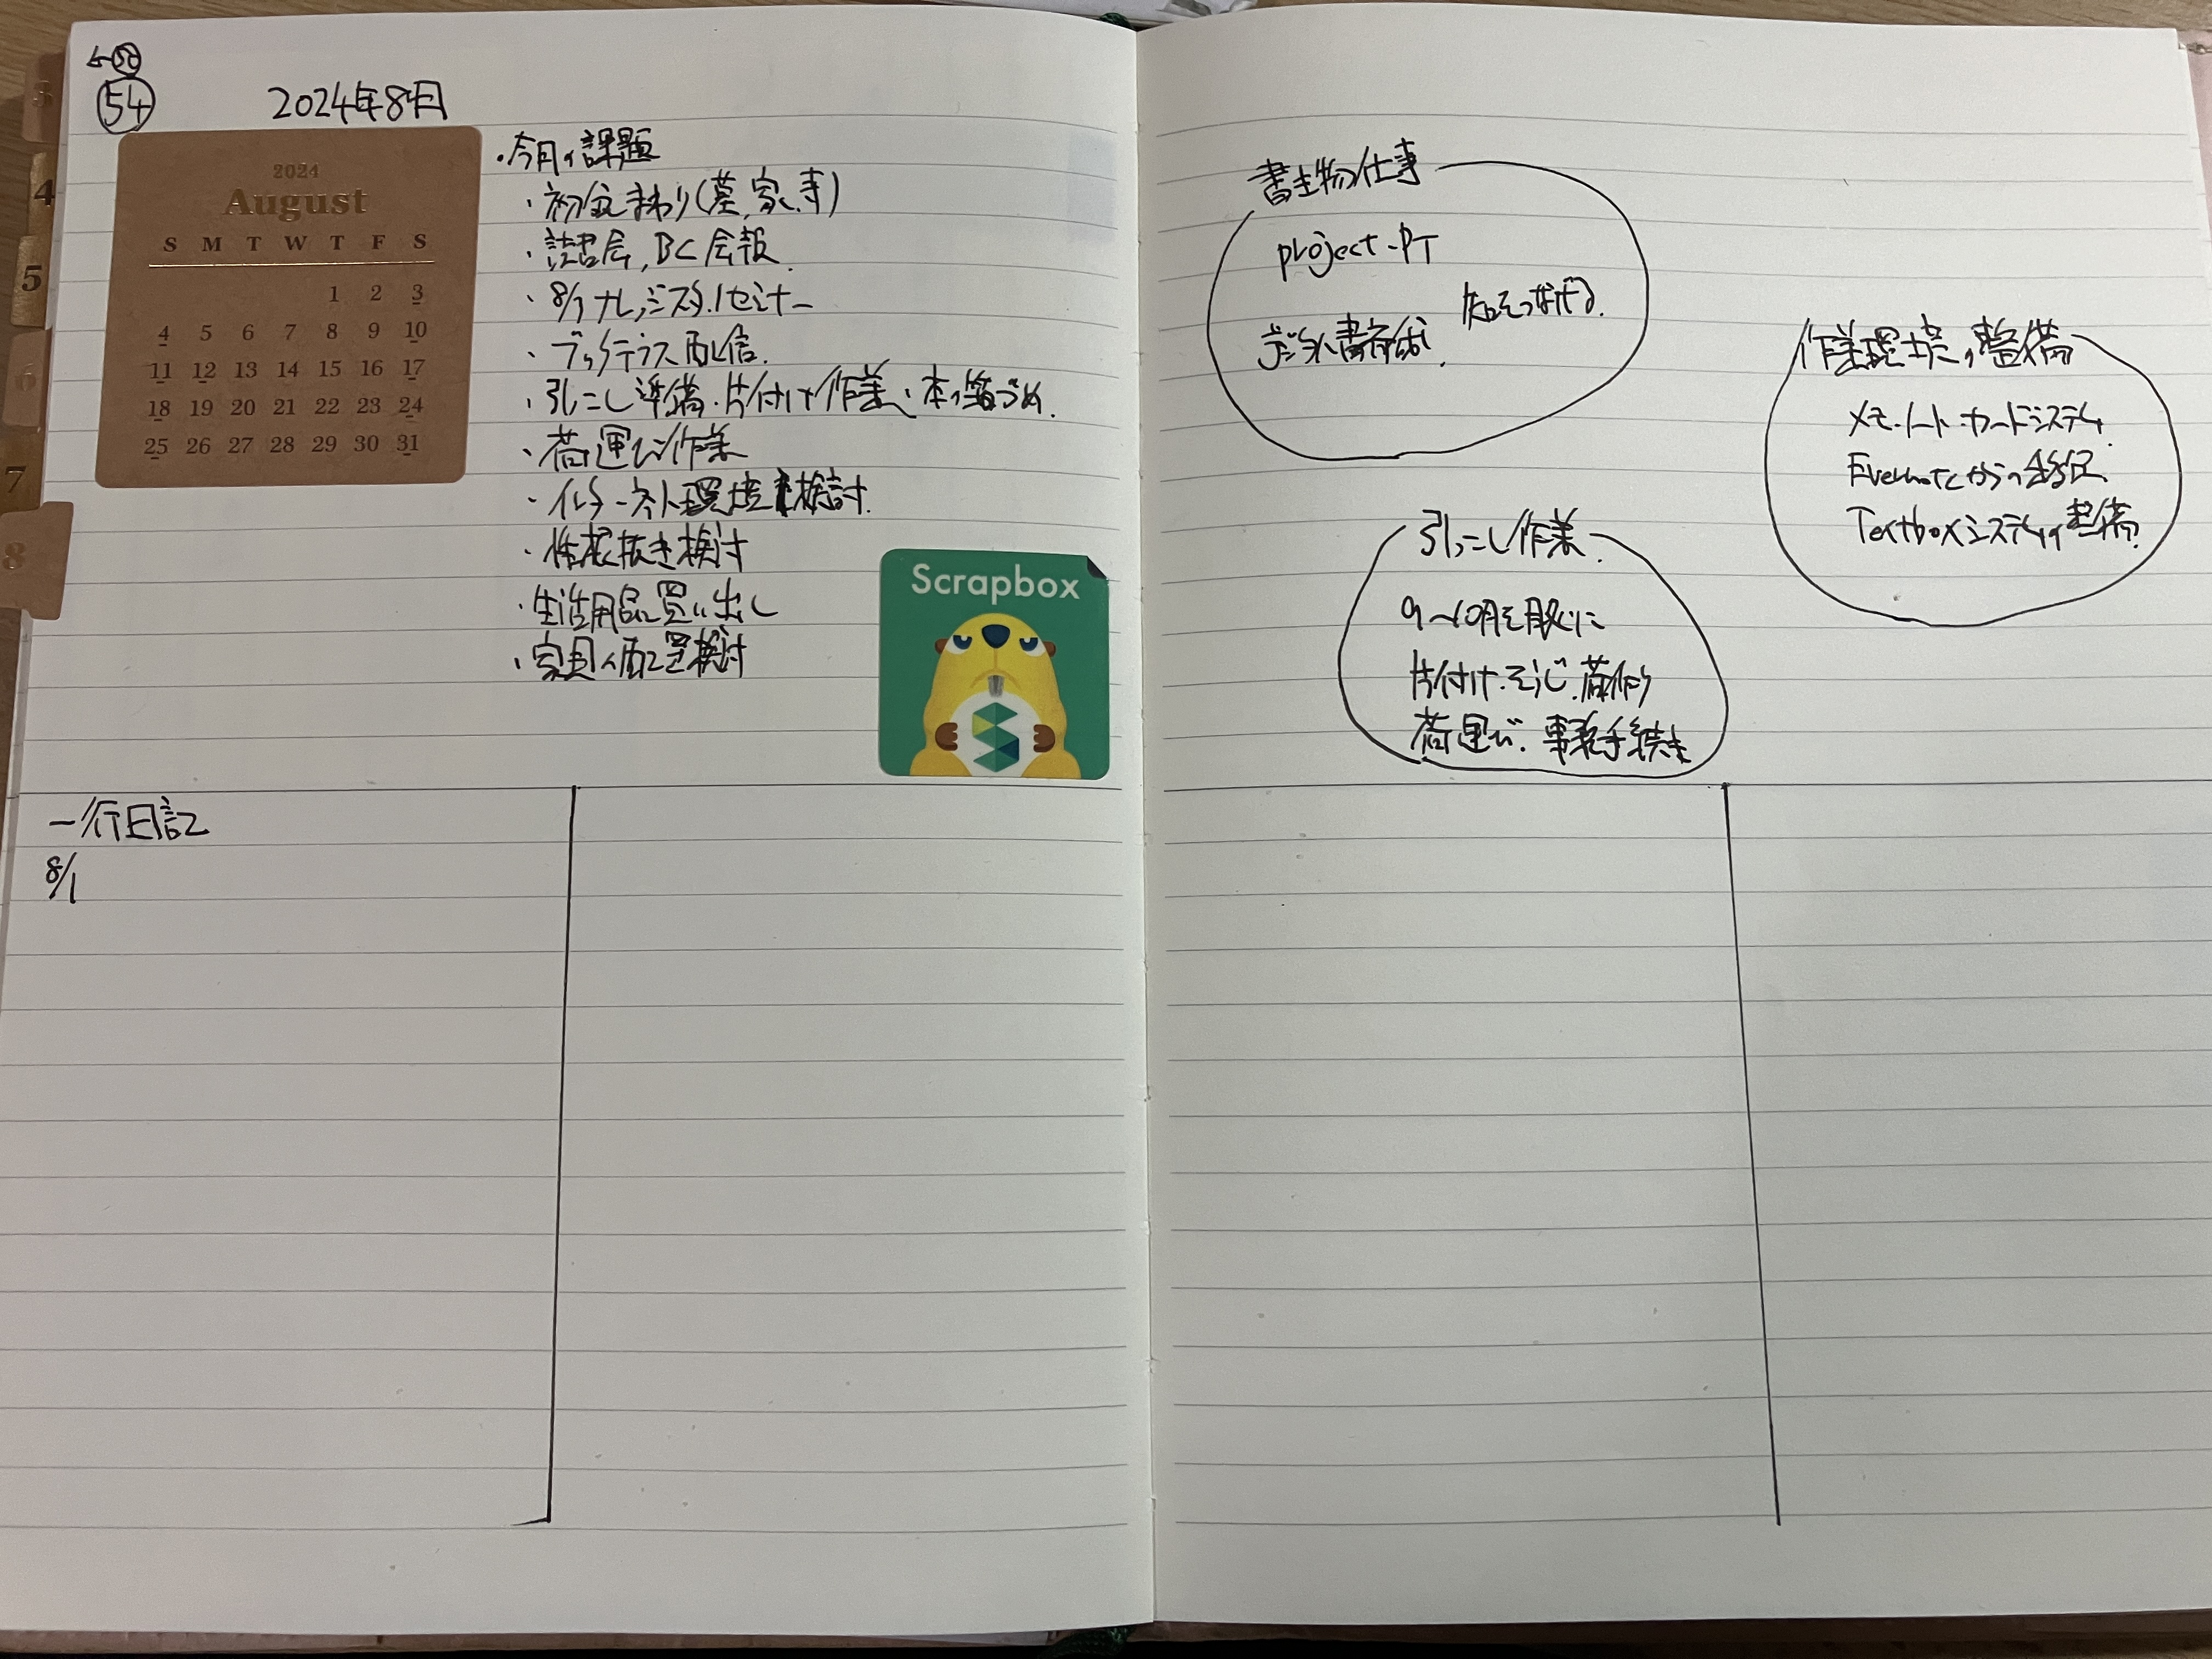 ←50
54
2024年8月
2024
August
S M T W T F S
1 2 3
4 5 6 7 8 9 10
11 12 13 14 15 16 17
18 19 20 21 22 23 24
25 26 27 28 29 30 31
・今月の課題
・初盆まわり(墓、家、寺)
・読書会、BC会報
・8/1 ナレッジスタ.1セミナー
・ブックテラス配信.
・引こし準備・片付け作業、本の箱づめ.
・荷運び作業
・インターネット環境検討.
・性根抜き検討
・生活用品買い出し
・家具の配置検討
Scrapbox
一行日記
8/1
書き物仕事
project-PT
知をつなげる.
デジタル書斎術.
作業環境の整備
メモ・ノート・カードシステム
Evernoteからの移民
Textboxシステムの整備
引っこし作業.
9〜10月を眼に
片付け・そうじ・荷作り
荷運び・事務手続き
3
4
5
6
7
8